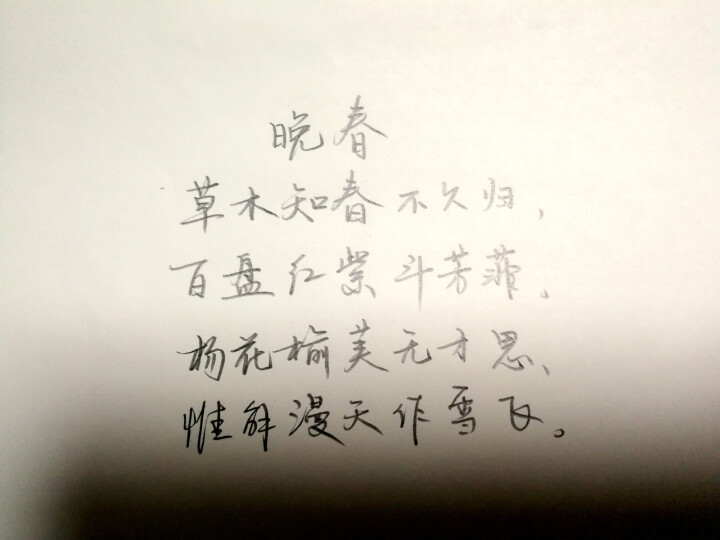 晚春
草木知春不久归，
百盘红紫斗芳菲。
杨花榆荚无才思、
惟解漫天作雪飞。